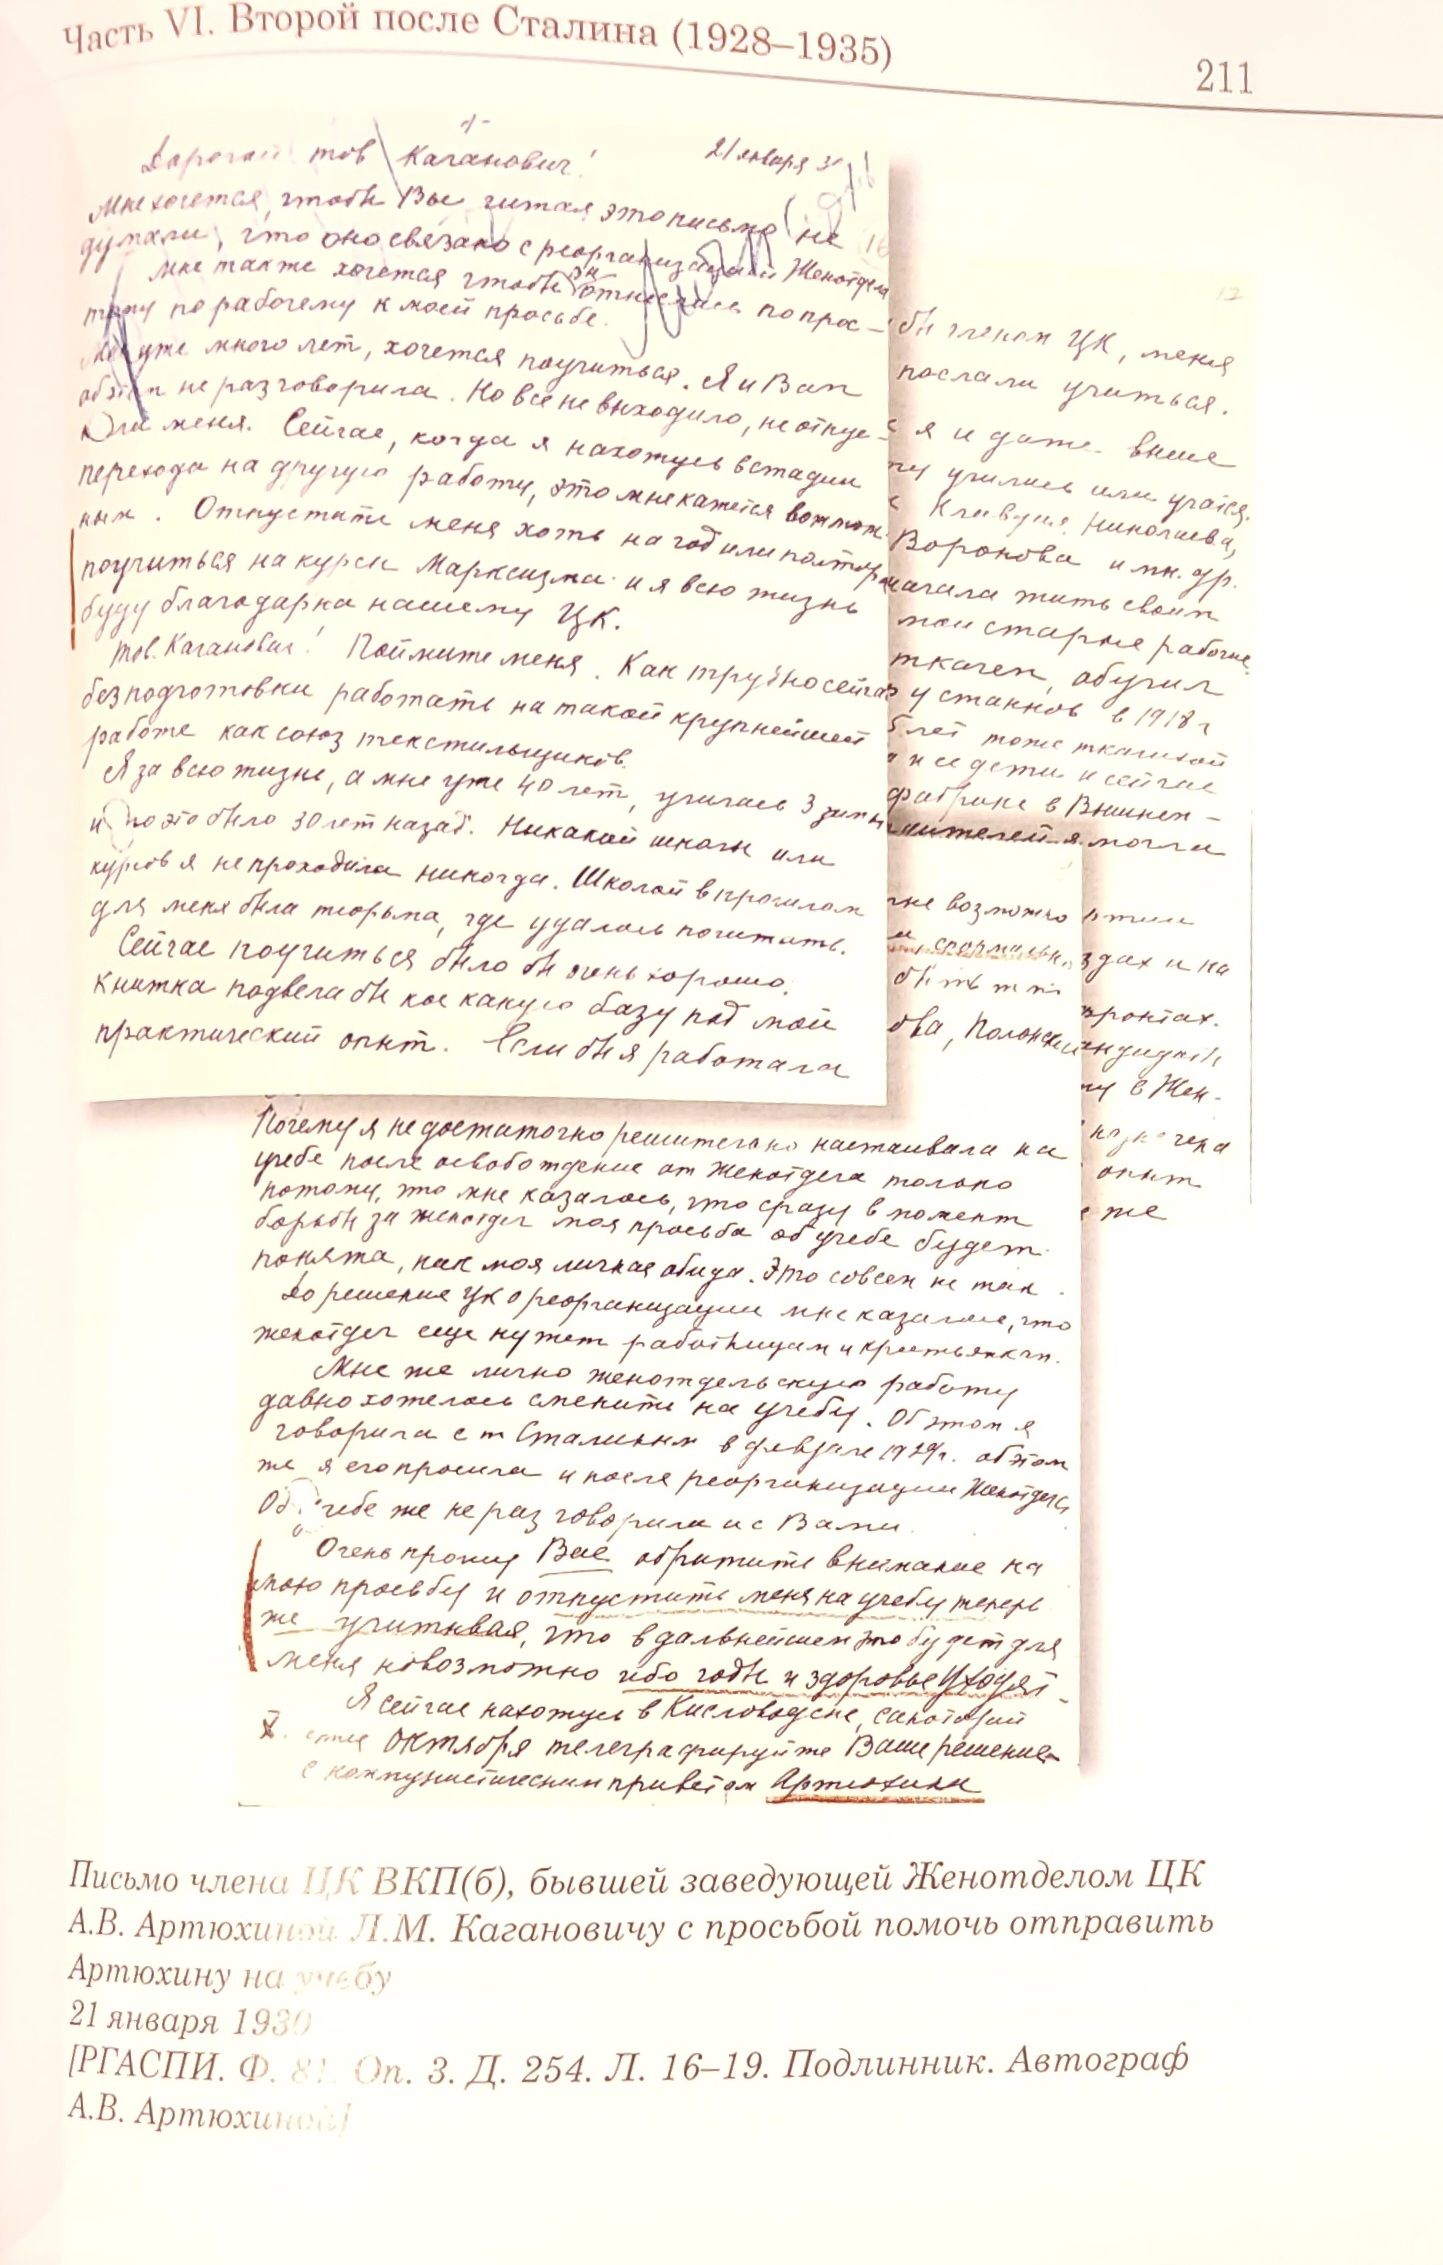 Часть VI. Второй после Сталина (1928–1935)
211
Дорогой тов Каганович!
21 января 30
Мне хочется, чтобы Вы читая это письмо не
думали, что оно связано с реорганизацией Женотдела
Мне также хочется чтобы отнеслись попрос-
тому по рабочему к моей просьбе.
Мне уже много лет, хочется поучиться. Я и Вам
об этом не раз говорила. Но все не выходило, не отпус-
кали меня. Сейчас, когда я нахожусь в стадии
перехода на другую работу, это мне кажется возмож
ным. Отпустите меня хоть на год или полтора
поучиться на курсы Марксизма и я всю жизнь
буду благодарна нашему ЦК.
Тов. Каганович! Поймите меня. Как трудно сейчас
без подготовки работать на такой крупнейшей
работе как союз текстильщиков.
Я за всю жизнь, а мне уже 40 лет, училась 3 зимы
и то это было 30 лет назад. Никакой школы или
курсов я не проходила никогда. Школой в прошлом
для меня была тюрьма, где удалось почитать.
Сейчас поучиться было бы очень хорошо.
Книжка подвела бы кое какую базу под мой
практический опыт. Если бы я работала
17
бы членом ЦК, меня
послали учиться.
я и даже выше
учились или учатся.
Клавдия Николаева,
Воронова и мн. др.
начала жить своим
мои старые рабочие
ткачем, обучил
у станков в 1918 г
5 лет тоже ткачихой
и ее дети и сейчас
фабрике в Вышнем-
я могла
возможно
быть
ова, Полонск
здах и на
фронтах.
у в Жен-
опыт
же
Почему я не достаточно решительно настаивала на
учебе после освобождение от Женотдела только
потому, что мне казалось, что сразу в момент
борьбы за женотдел моя просьба об учебе будет
понята, как моя личная обида. Это совсем не так.
До решение ЦК о реорганизации мне казалось, что
женотдел еще нужен работницам и крестьянкам.
Мне же лично женотдельскую работу
давно хотелось сменить на учебу. Об этом я
говорила с т Сталиным в феврале 1929г. об этом
же я его просила и после реорганизации Женотдела
Об учебе же не раз говорила и с Вами.
Очень прошу Вас обратить внимание на
мою просьбу и отпустить меня на учебу теперь
же учитывая, что в дальнейшем это будет для
меня невозможно ибо годы и здоровье уходят.
Я сейчас нахожусь в Кисловодске, санаторий
Х. Октября телеграфируйте Ваше решение
с коммунистическим приветом Артюхина
Письмо члена ЦК ВКП(б), бывшей заведующей Женотделом ЦК
А.В. Артюхиной Л.М. Кагановичу с просьбой помочь отправить
Артюхину на учебу
21 января 1930
[РГАСПИ. Ф. 81. Оп. 3. Д. 254. Л. 16–19. Подлинник. Автограф
А.В. Артюхиной]